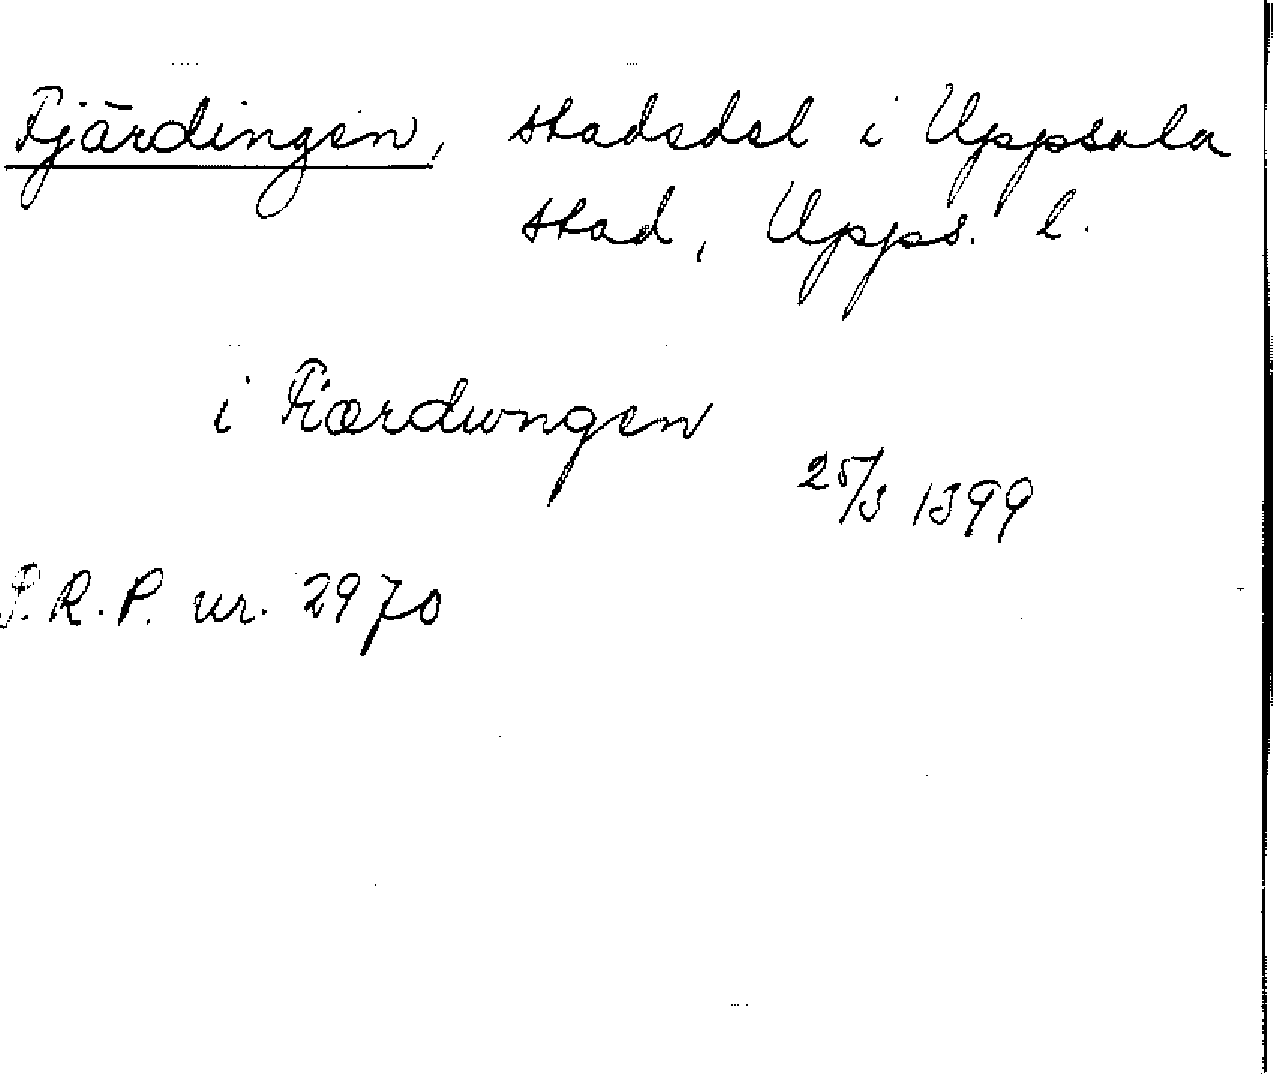 Fjärdingen, stadsdel i Uppsala
stad, Upps. l.
i Fiærdungen
25/3 1399
P.R.P. nr. 2970